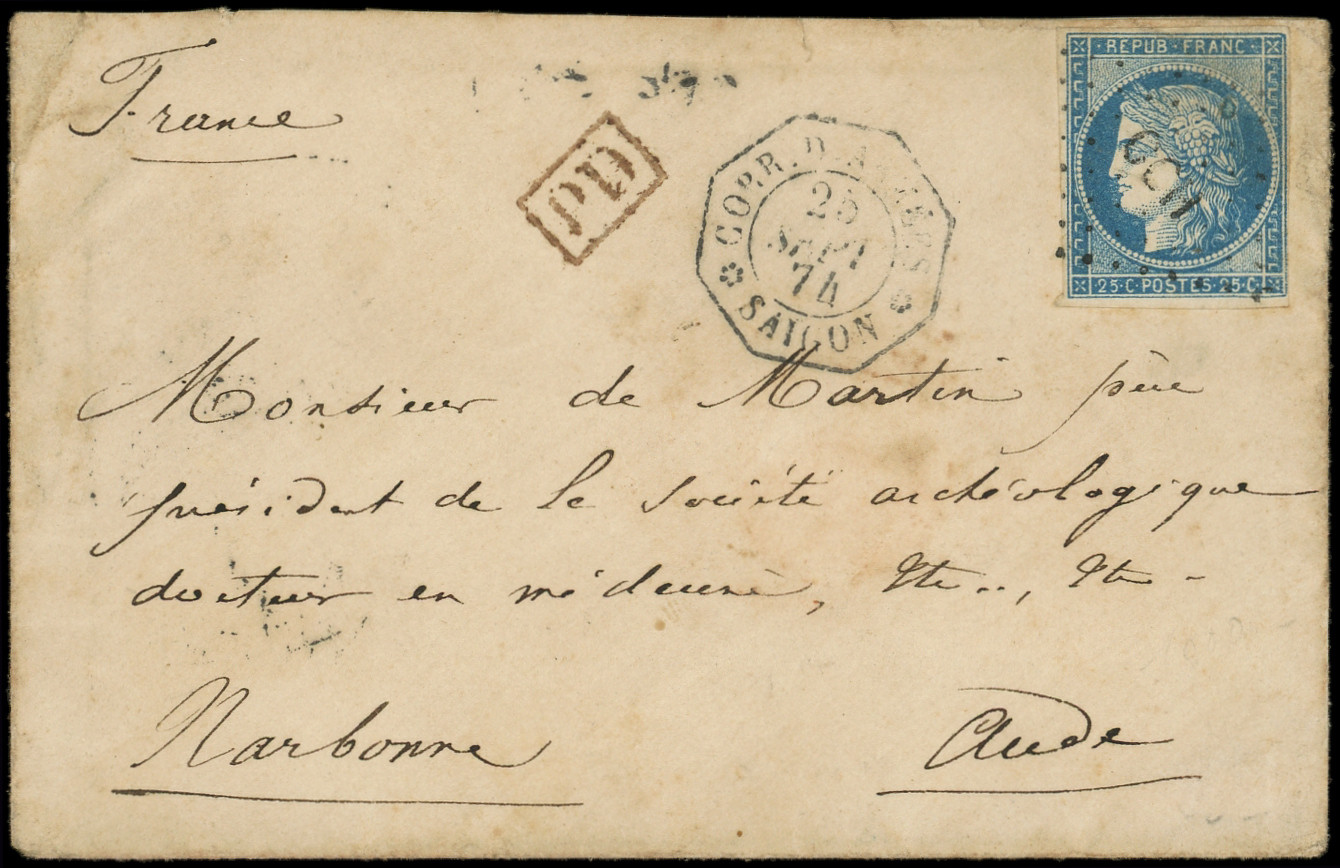 France
PD
CORR. D. ARMÉES
25
SEPT
74
SAIGON
REPUB · FRANC
25 · C · POSTES · 25 · C
Monsieur de Martin père
président de la société archéologique
docteur en médecine, &tc.., &tc -
Narbonne Aude